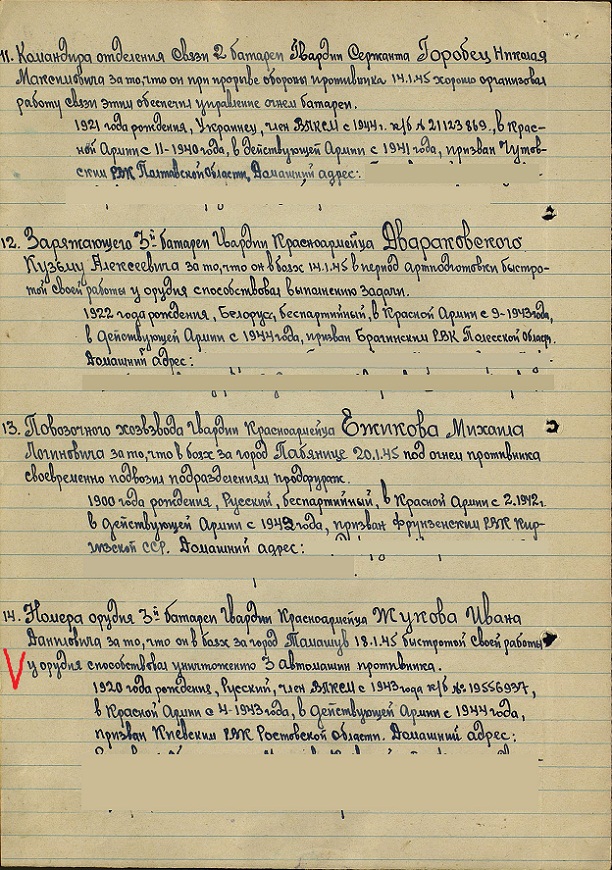 11. Командира отделения связи 2 батареи Гвардии Сержанта Горобец Николая
Максимовича за то, что он при прорыве обороны противника 14.1.45 хорошо организовал
работу связи этим обеспечил управление огнем батареи.
1921 года рождения, Украинец, член ВЛКСМ с 1944г. к/б №21123869, в Крас-
ной Армии с 11-1940 года, в действующей Армии с 1941 года, призван Чутов-
ским РВК Полтавской Области, Домашний адрес:
12. Заряжающего 3й батареи Гвардии Красноармейца Двараковского
Кузьму Алексеевича за то, что он в боях 14.1.45 в период артподготовки быстро-
той своей работы у орудия способствовал выполнению задачи.
1922 года рождения, Белорус, беспартийный, в Красной Армии с 9-1943 года,
в действующей Армии с 1944 года, призван Брагинским РВК Полесской Област.
Домашний адрес:
13. Повозочного хозвзвода Гвардии Красноармейца Ежикова Михаила
Логиновича за то, что в боях за город Пабянице 20.1.45 под огнем противника
своевременно подвозил подразделениям продфураж.
1900 года рождения, Русский, беспартийный, в Красной Армии с 2.1942г.
в действующей Армии с 1942 года, призван Фрунзенским РВК Кир-
гизской ССР. Домашний адрес:
14. Номера орудия 3й батареи Гвардии Красноармейца Жукова Ивана
Даниловича за то, что он в боях за город Тамашув 18.1.45 быстротой своей работы
у орудия способствовал уничтожению 3 автомашин противника.
1920 года рождения, Русский, член ВЛКСМ с 1943 года к/б № 19556937,
в Красной Армии с 4-1943 года, в действующей Армии с 1944 года,
призван Киевским РВК Ростовской Области. Домашний адрес: